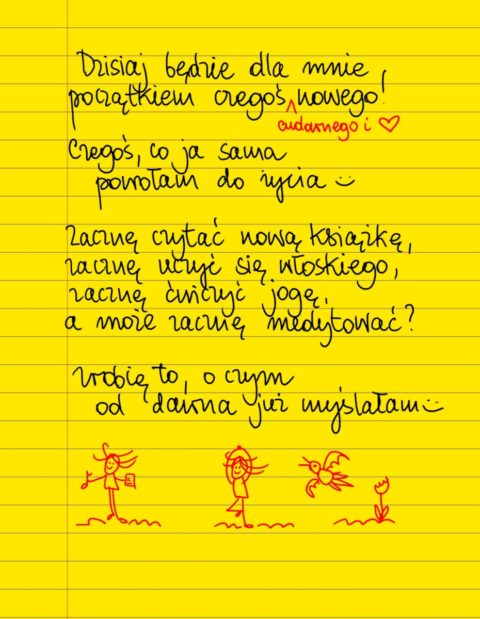 Dzisiaj będzie dla mnie
początkiem czegoś nowego!
cudownego i ♡
Czegoś, co ja sama
powołam do życia :)
Zacznę czytać nową książkę,
zacznę uczyć się włoskiego,
zacznę ćwiczyć jogę,
a może zacznę medytować?
Zrobię to, o czym
od dawna już myślałam :)